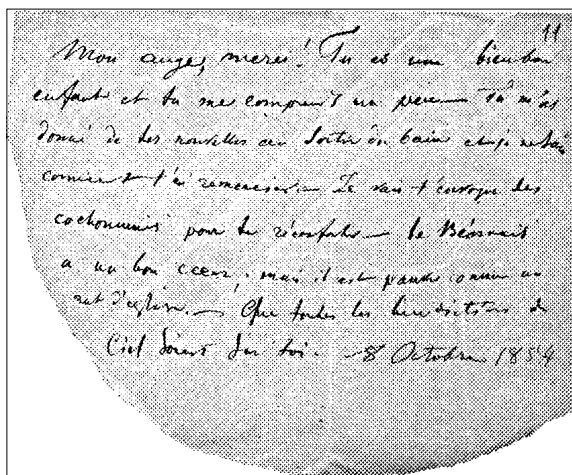 11
Mon ange, merci! Tu es une bien bon
enfant et tu me comprends un peu — Tu m'as
donné de tes nouvelles au sortir du bain et je ne sais
comment t'en remercier. — Je vais t'envoyer des
cochonneries pour te réconforter — le Béarnais
a un bon coeur, mais il est pauvre comme un
rat d'église. — Que toutes les bénédictions du
Ciel soient sur toi. — 8 Octobre 1854